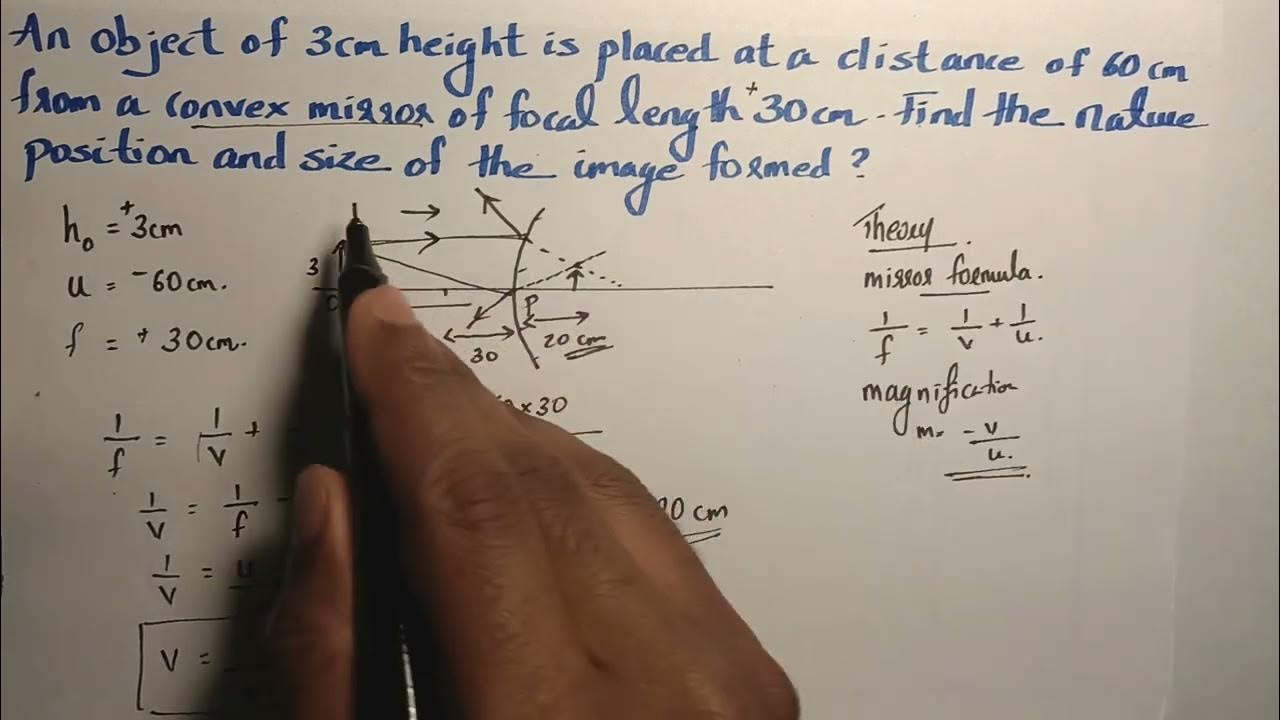 An object of 3cm height is placed at a distance of 60cm
from a convex mirror of focal length +30cm. Find the nature
position and size of the image formed?
h₀ = +3cm
u = -60cm.
f = +30cm.
3
P
30
20 cm
1/f = 1/v +
1/v = 1/f -
1/v = u
v =
×30
0 cm
Theory.
mirror formula.
1/f = 1/v + 1/u.
magnification
m = -v/u.